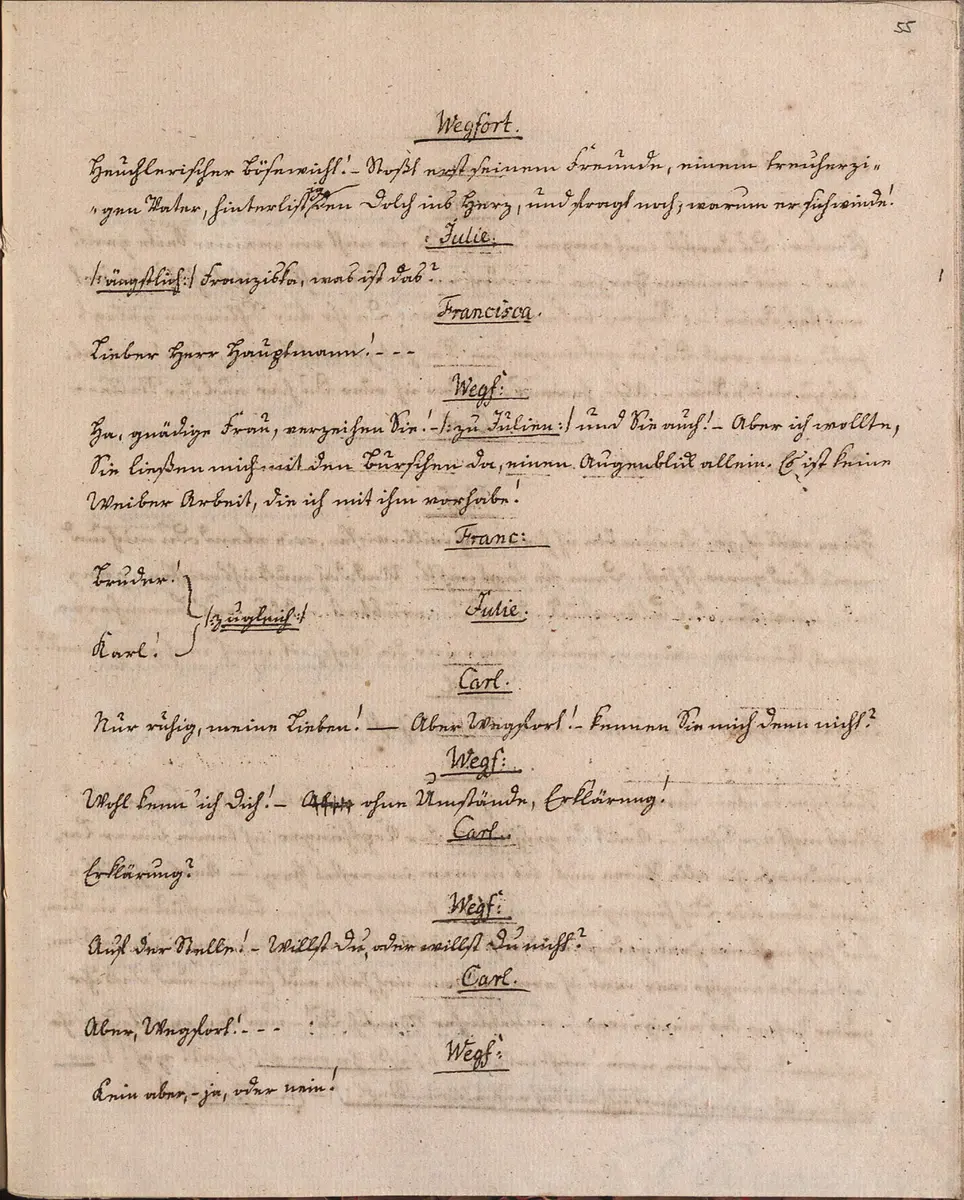 55
Wegfort.
Heuchlerischer Bösewicht! – Stoßt erst seinem Freunde, einem treuherzi=
=gen Vater, hinterlistigen Dolch ins Herz, und fragt noch, warum er sich winde!
Julie.
/: ängstlich :/ Franziska, was ist das?
Francisca.
Lieber Herr Hauptmann! - - -
Wegf:
Ha, gnädige Frau, verzeihen Sie! – /: zu Julien :/ und Sie auch! – Aber ich wollte,
Sie ließen mich mit den Burschen da, einen Augenblick allein. Es ist keine
Weiber Arbeit, die ich mit ihm vorhabe!
Franc:
Bruder!
/: zugleich :/ Julie.
Karl!
Carl.
Nur ruhig, meine Lieben! — Aber Wegfort! – kennen Sie mich denn nicht?
Wegf:
Wohl kenn' ich dich! – ohne Umstände, Erklärung!
Carl.
Erklärung?
Wegf:
Auf der Stelle! – Willst du, oder willst du nicht?
Carl.
Aber, Wegfort! - - -
Wegf:
Kein aber, – ja, oder nein!